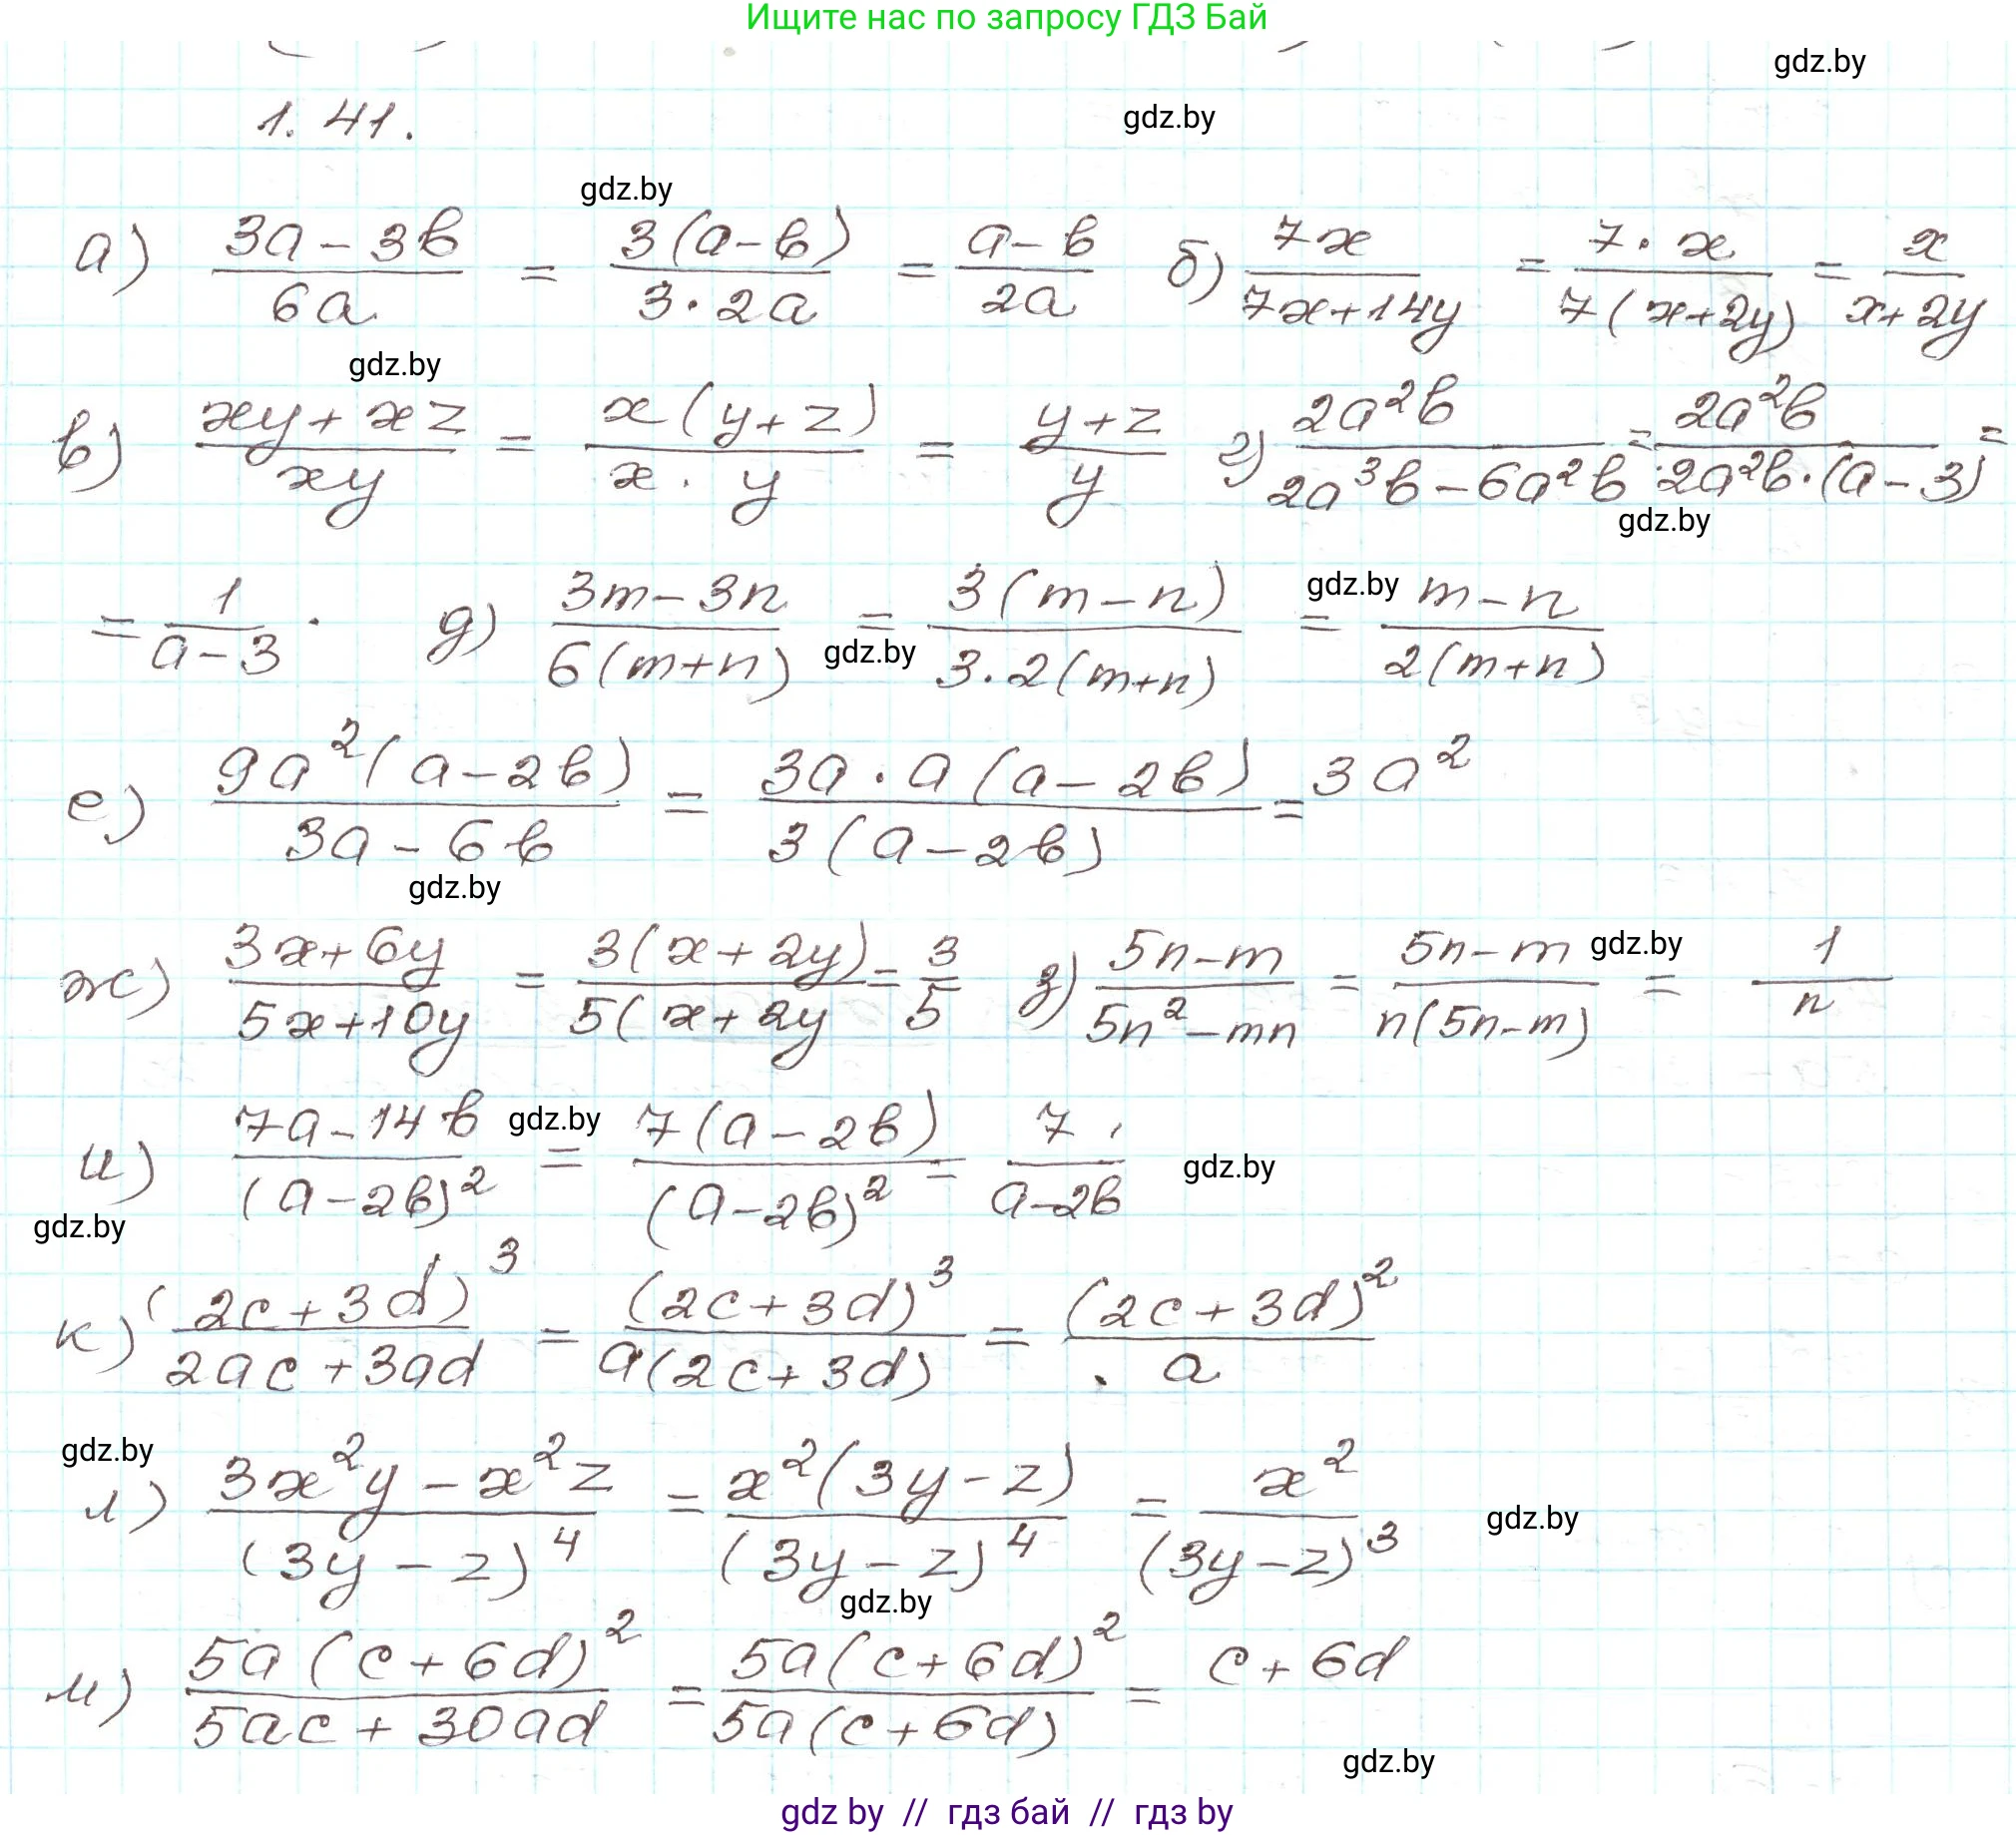 Ищите нас по запросу ГДЗ Бай
gdz.by
1.41. gdz.by
gdz.by
а) (3a-3b)/(6a) = (3(a-b))/(3·2a) = (a-b)/(2a) б) (7x)/(7x+14y) = (7·x)/(7(x+2y)) = x/(x+2y)
gdz.by
в) (xy+xz)/(xy) = (x(y+z))/(x·y) = (y+z)/y г) (2a²b)/(2a³b-6a²b) = (2a²b)/(2a²b·(a-3)) =
gdz.by
= 1/(a-3). д) (3m-3n)/(6(m+n)) gdz.by = (3(m-n))/(3·2(m+n)) = gdz.by (m-n)/(2(m+n))
е) (9a²(a-2b))/(3a-6b) = (3a·a(a-2b))/(3(a-2b)) = 3a²
gdz.by
ж) (3x+6y)/(5x+10y) = (3(x+2y))/(5(x+2y) = 3/5 з) (5n-m)/(5n²-mn) = (5n-m)/(n(5n-m)) gdz.by = 1/n
и) (7a-14b)/((a-2b)²) gdz.by = (7(a-2b))/((a-2b)²) = 7/(a-2b) gdz.by
gdz.by
к) ((2c+3d)³)/(2ac+3ad) = ((2c+3d)³)/(a(2c+3d)) = ((2c+3d)²)/a
gdz.by
л) (3x²y-x²z)/((3y-z)⁴) = (x²(3y-z))/((3y-z)⁴) = x²/((3y-z)³) gdz.by
gdz.by
м) (5a(c+6d)²)/(5ac+30ad) = (5a(c+6d)²)/(5a(c+6d)) = c+6d
gdz.by
gdz by // гдз бай // гдз by